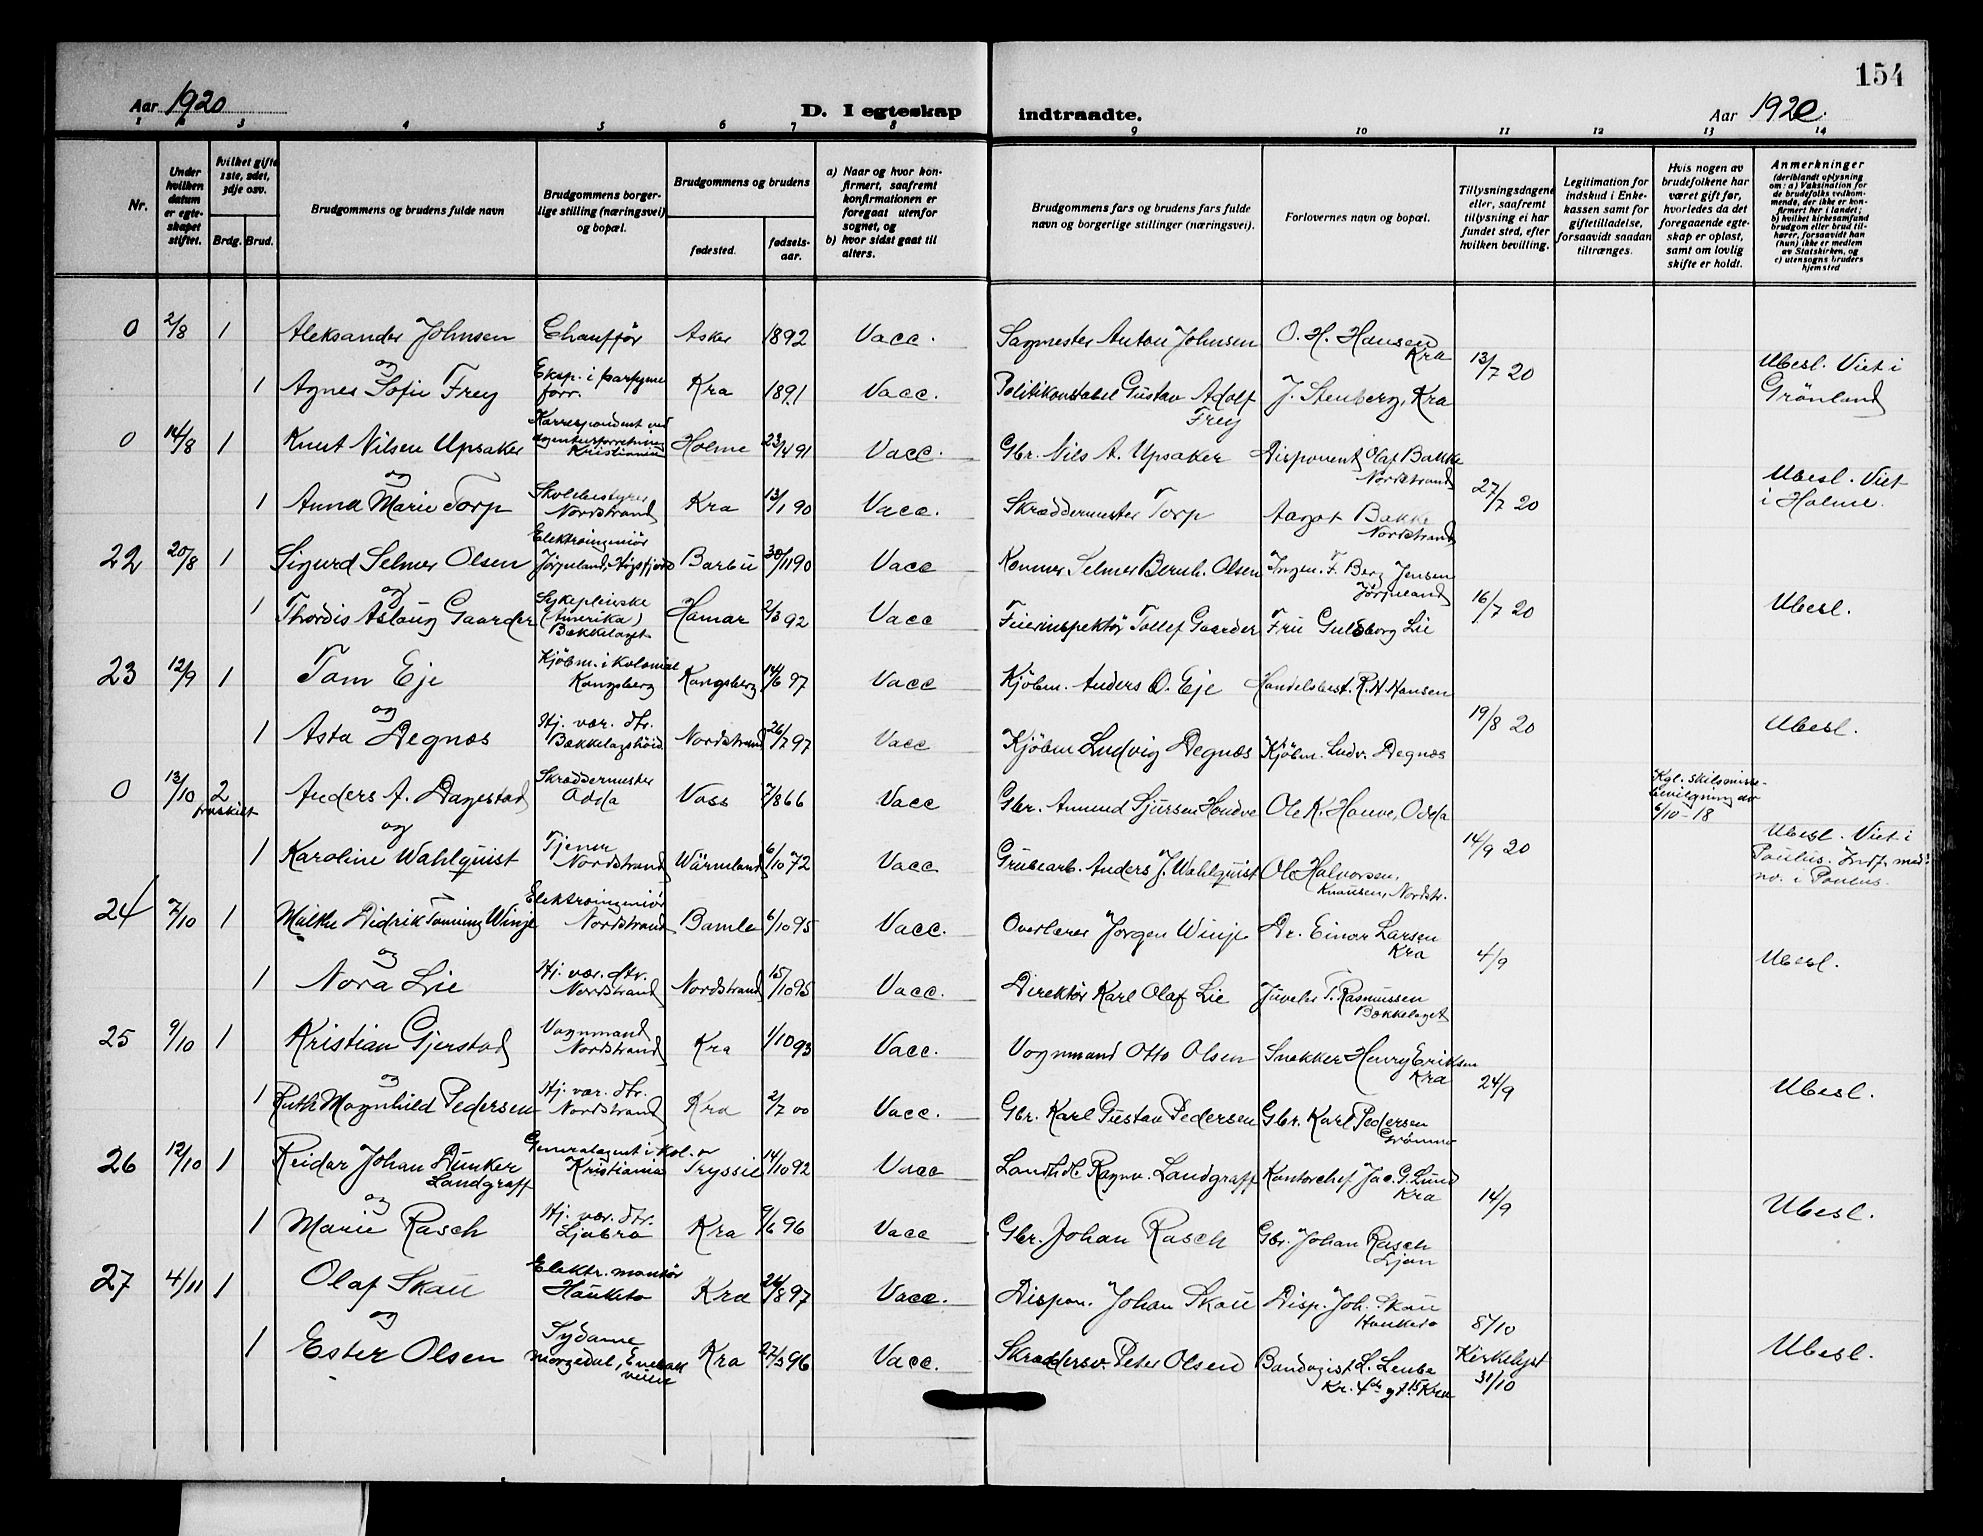 154
Aar 1920
D. I egteskap indtraadte.
Aar 1920.
1 2 3 4 5 6 7 8 9 10 11 12 13 14
Nr.
Under hvilken datum er egteskapet stiftet.
hvilket gifte 1ste, 2det, 3dje osv.
Brdg. Brud.
Brudgommens og brudens fulde navn
Brudgommens borgerlige stilling (næringsvei) og bopæl.
Brudgommens og brudens
fødested.
fødselsaar.
a) Naar og hvor konfirmert, saafremt konfirmationen er foregaat utenfor sognet, og
b) hvor sidst gaat til alters.
Brudgommens fars og brudens fars fulde navn og borgerlige stillinger (næringsvei).
Forlovernes navn og bopæl.
Tillysningsdagene eller, saafremt tillysning ei har fundet sted, efter hvilken bevilling.
Legitimation for indskud i Enkekassen samt for giftetilladelse, forsaavidt saadan tiltrænges.
Hvis nogen av brudefolkene har været gift før, hvorledes da det foregaaende egteskap er opløst, samt om lovlig skifte er holdt.
Anmerkninger
(deriblandt oplysning om: a) Vaksination for de brudefolks vedkommende, der ikke er konfirmert her i landet; b) hvilket kirkesamfund brudgom eller brud tilhører, forsaavidt han (hun) ikke er medlem av Statskirken, og c) utensogns bruders hjemsted
0 2/8 1 Aleksander Johnsen Chauffør Asker 1892 Vacc. Sagmester Anton Johnsen O. H. Hansen Kra
og
13/7 20
1 Agnes Sofie Frey Eksp. i parfymeforr. Kra 1891 Vacc. Politikonstabel Gustav Adolf Frey J. Stenberg, Kra Ubesl. Viet i Grönland
0 14/8 1 Knut Nilsen Upsaker Korrespondent ved agenturforretning Kristiania Holme 23/4 91 Vacc. Gbr. Nils A. Upsaker Disponent Olaf Bakke Nordstrand
og
27/7 20
1 Anna Marie Torp Skolebestyrer Nordstrand Kra 13/1 90 Vacc. Skræddermester Torp Aagot Bakke Nordstrand Ubesl. Viet i Holme.
22 20/8 1 Sigurd Selmer Olsen Elektroingeniör Jørpeland, Høgsfjord Barbu 30/11 90 Vacc Konmer Selmer Bernh. Olsen Ingen. F. Berg Jensen Jørpeland
og
16/7 20
1 Thordis Aslaug Gaarder Sykepleierske (Amerika) Bækkelaget Hamar 2/3 92 Vacc Feierinspektör Tollef Gaarder Fru Guldborg Lie Ubesl.
23 12/9 1 Tom Eje Kjöbm. i Kolonial Kongsberg Kongsberg 14/6 97 Vacc Kjöbm. Anders O. Eje Handelsbest. R. H. Hansen
og
19/8 20
1 Asta Degnæs Hj. vær. dtr. Bækkelagshöid. Nordstrand 26/7 97 Vacc Kjöbm Ludvig Degnæs Kjöbm. Ludv. Degnæs Ubesl.
0 13/10 2 fraskilt Anders A. Dagestad Skræddermester Odda Voss 7/8 66 Vacc Gbr. Amund Sjursen Houdve Ole K. Hauve, Odda Kgl. skilsmissebevilgning av 6/10-18
og
14/9 20
1 Karoline Wahlquist Tjener Nordstrand Wärmland 6/10 72 Vacc Grubearb. Anders J. Wahlquist Ole Halvorsen, Knausen, Nordstr. Ubesl. Viet i Paulus. Indf. med no. i Paulus.
24 7/10 1 Malthe Didrik Tønning Winje Elektroingeniör Nordstrand Bamle 6/10 95 Vacc. Overlærer Jørgen Winje Dr. Einar Larsen Kra
og
4/9
1 Nora Lie Hj. vær. dtr. Nordstrand Nordstrand 15/10 95 Vacc. Direktör Karl Olaf Lie Juveler T. Rasmussen Bækkelaget Ubesl.
25 9/10 1 Kristian Gjerstad Vognmand Nordstrand Kra 1/10 93 Vacc. Vognmand Otto Olsen Snekker Henry Eriksen Kra
og
24/9
1 Ruth Magnhild Pedersen Hj. vær. dtr. Nordstrand Kra 2/7 00 Vacc. Gbr. Karl Gustav Pedersen Gbr. Karl Pedersen Grønmo Ubesl.
26 12/10 1 Reidar Johan Dunker Landgraff Generalagent i Kol. Kristiania Tryssil 14/10 92 Vacc Landhdl. Ragnv. Landgraff Kontorchef Jac. G. Lund Kra
og
14/9
1 Marie Rasch Hj. vær. dtr. Ljabro Kra 9/6 96 Vacc Gbr. Johan Rasch Gbr. Johan Rasch Ljan Ubesl.
27 4/11 1 Olaf Skau Elektr. montör Hauketo Kra 24/8 97 Vacc. Dispon. Johan Skau Disp. Joh. Skau Hauketo
og
8/10
1 Ester Olsen Sydame Norgedal, Enebakkveien Kra 27/3 96 Vacc. Skræddersv. Peter Olsen Bandagist L. Leube Kr. 4des g. 15 Kra Kirkelyst 31/10 Ubesl.